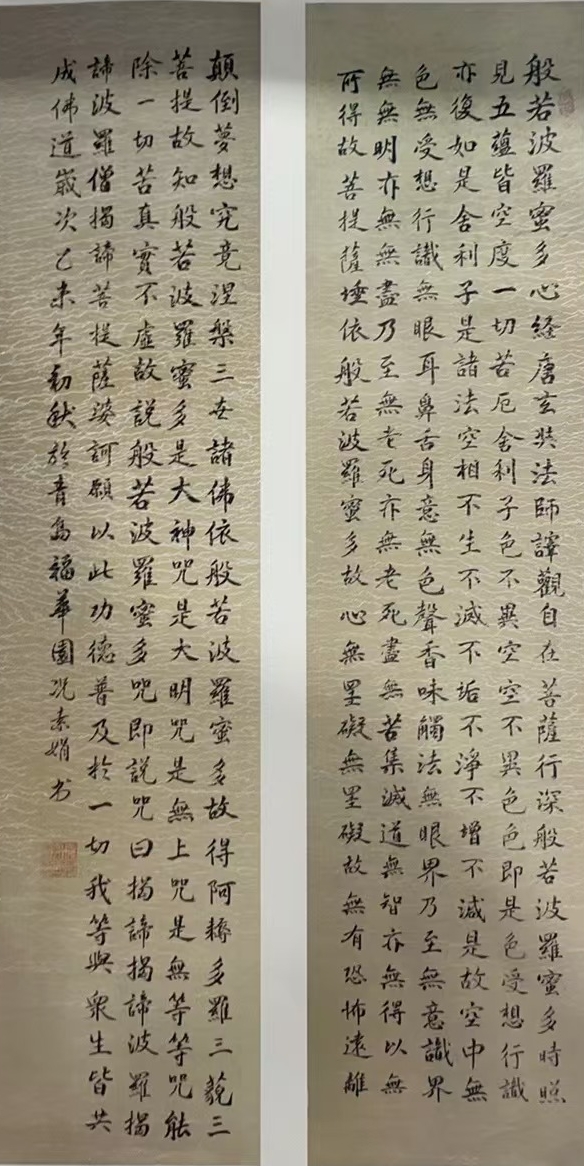 般若波羅蜜多心経唐玄奘法師譯觀自在菩薩行深般若波羅蜜多時照
見五蘊皆空度一切苦厄舍利子色不異空空不異色色即是色受想行識
亦復如是舍利子是諸法空相不生不滅不垢不淨不增不減是故空中無
色無受想行識無眼耳鼻舌身意無色聲香味觸法無眼界乃至無意識界
無無明亦無無盡乃至無老死亦無老死盡無苦集滅道無智亦無得以無
所得故菩提薩埵依般若波羅蜜多故心無罣礙無罣礙故無有恐怖遠離
顛倒夢想究竟涅槃三世諸佛依般若波羅蜜多故得阿耨多羅三藐三
菩提故知般若波羅蜜多是大神咒是大明咒是無上咒是無等等咒能
除一切苦真實不虛故說般若波羅蜜多咒即說咒曰揭諦揭諦波羅揭
諦波羅僧揭諦菩提薩婆訶願以此功德普及於一切我等與眾生皆共
成佛道歲次乙未年初秋於青島福華園况素娟书